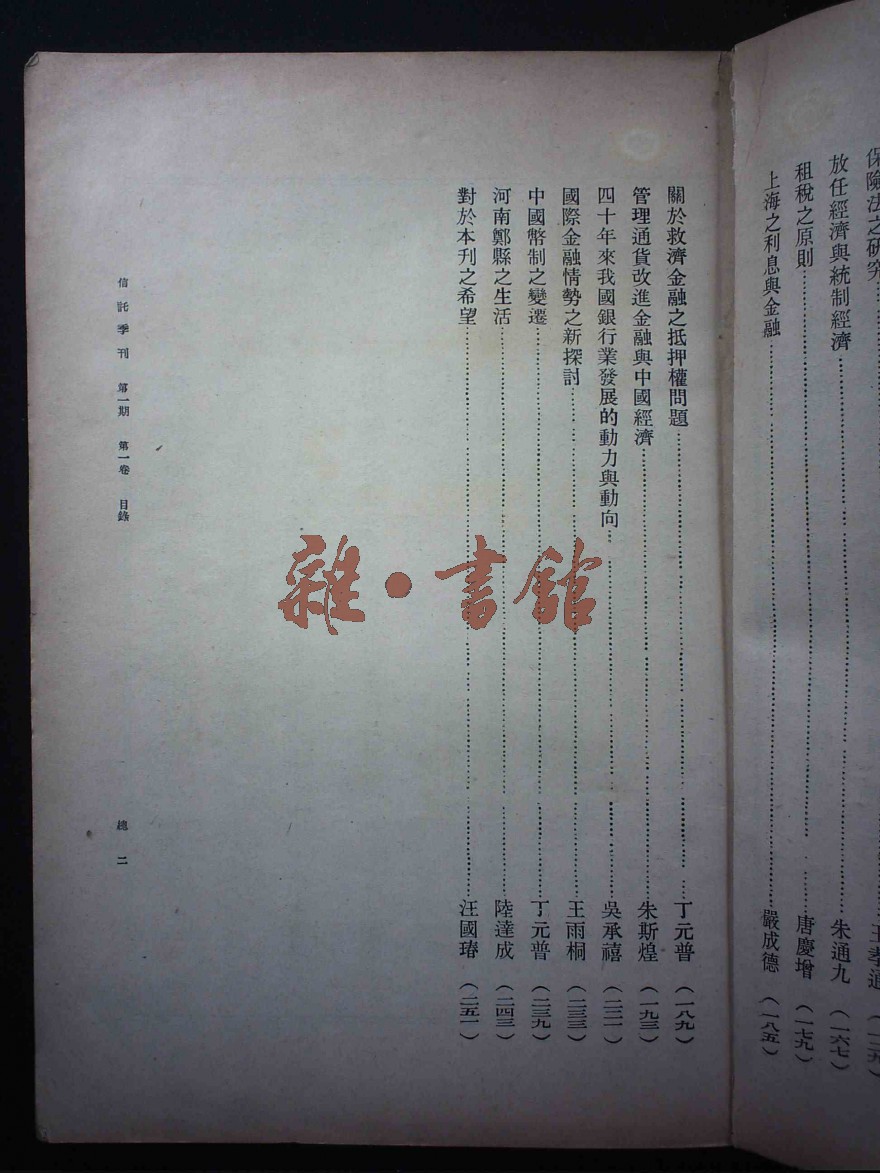 保險法之研究
放任經濟與統制經濟……朱通九（一六七）
租稅之原則……唐慶增（一七九）
上海之利息與金融……嚴成德（一八五）
關於救濟金融之抵押權問題……丁元普（一八九）
管理通貨改進金融與中國經濟……朱斯煌（一九三）
四十年來我國銀行業發展的動力與動向……吳承禧（二二一）
國際金融情勢之新探討……王雨桐（二三三）
中國幣制之變遷……丁元普（二三九）
河南鄭縣之生活……陸達成（二四三）
對於本刊之希望……汪國瑃（二五一）
信託季刊 第一期 第一卷 目錄 總二
雜·書館